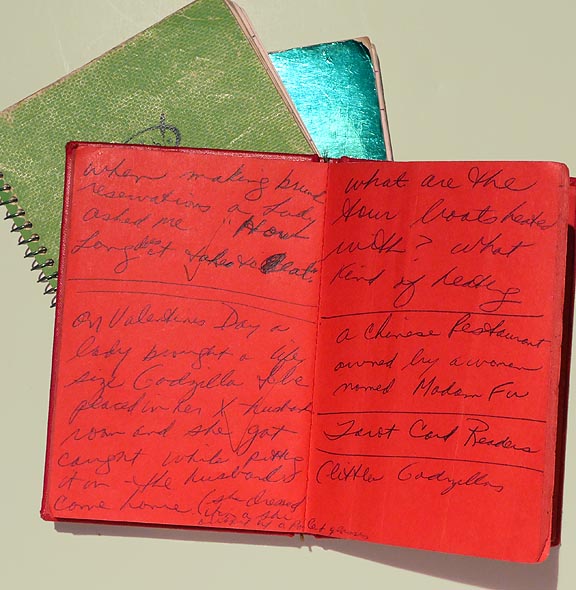 when making brunch
reservations a lady
asked me "How
Long does it take to eat."
On Valentines Day a
lady brought a life
size Godzilla to be
placed in her X husbands
room and she got
caught while putting
it on - the husband
come home (she dressed
up a
what are the
tour boats heated
with? what
kind of heating
a Chinese Restaurant
owned by a woman
named Madam Fu
Tarot Card Readers
(little Godzillas